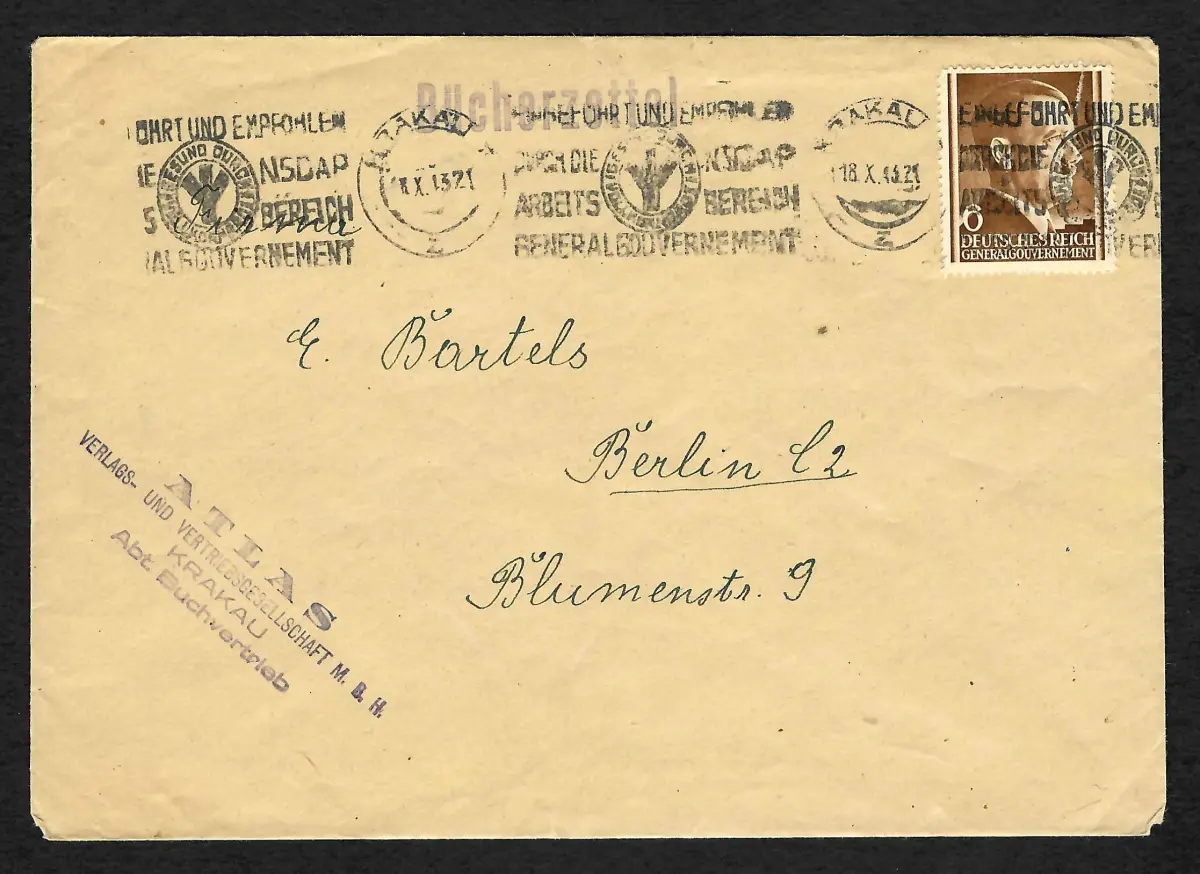 Bücherzettel
FÜHRT UND EMPFOHLEN
EINGEFÜHRT UND EMPFOHLEN
EINGEFÜHRT UND EMP
NSDAP
DURCH DIE NSDAP
DURCH DIE
BEREICH
ARBEITSBEREICH
ARBEITS
GENERALGOUVERNEMENT
GENERALGOUVERNEMENT
KRAKAU
18.X.43.21
2
KRAKAU
18.X.43.21
2
6
DEUTSCHES REICH
GENERALGOUVERNEMENT
Firma
E. Bartels
Berlin C2
Blumenstr. 9
ATLAS
VERLAGS- UND VERTRIEBSGESELLSCHAFT M. B. H.
KRAKAU
Abt. Buchvertrieb